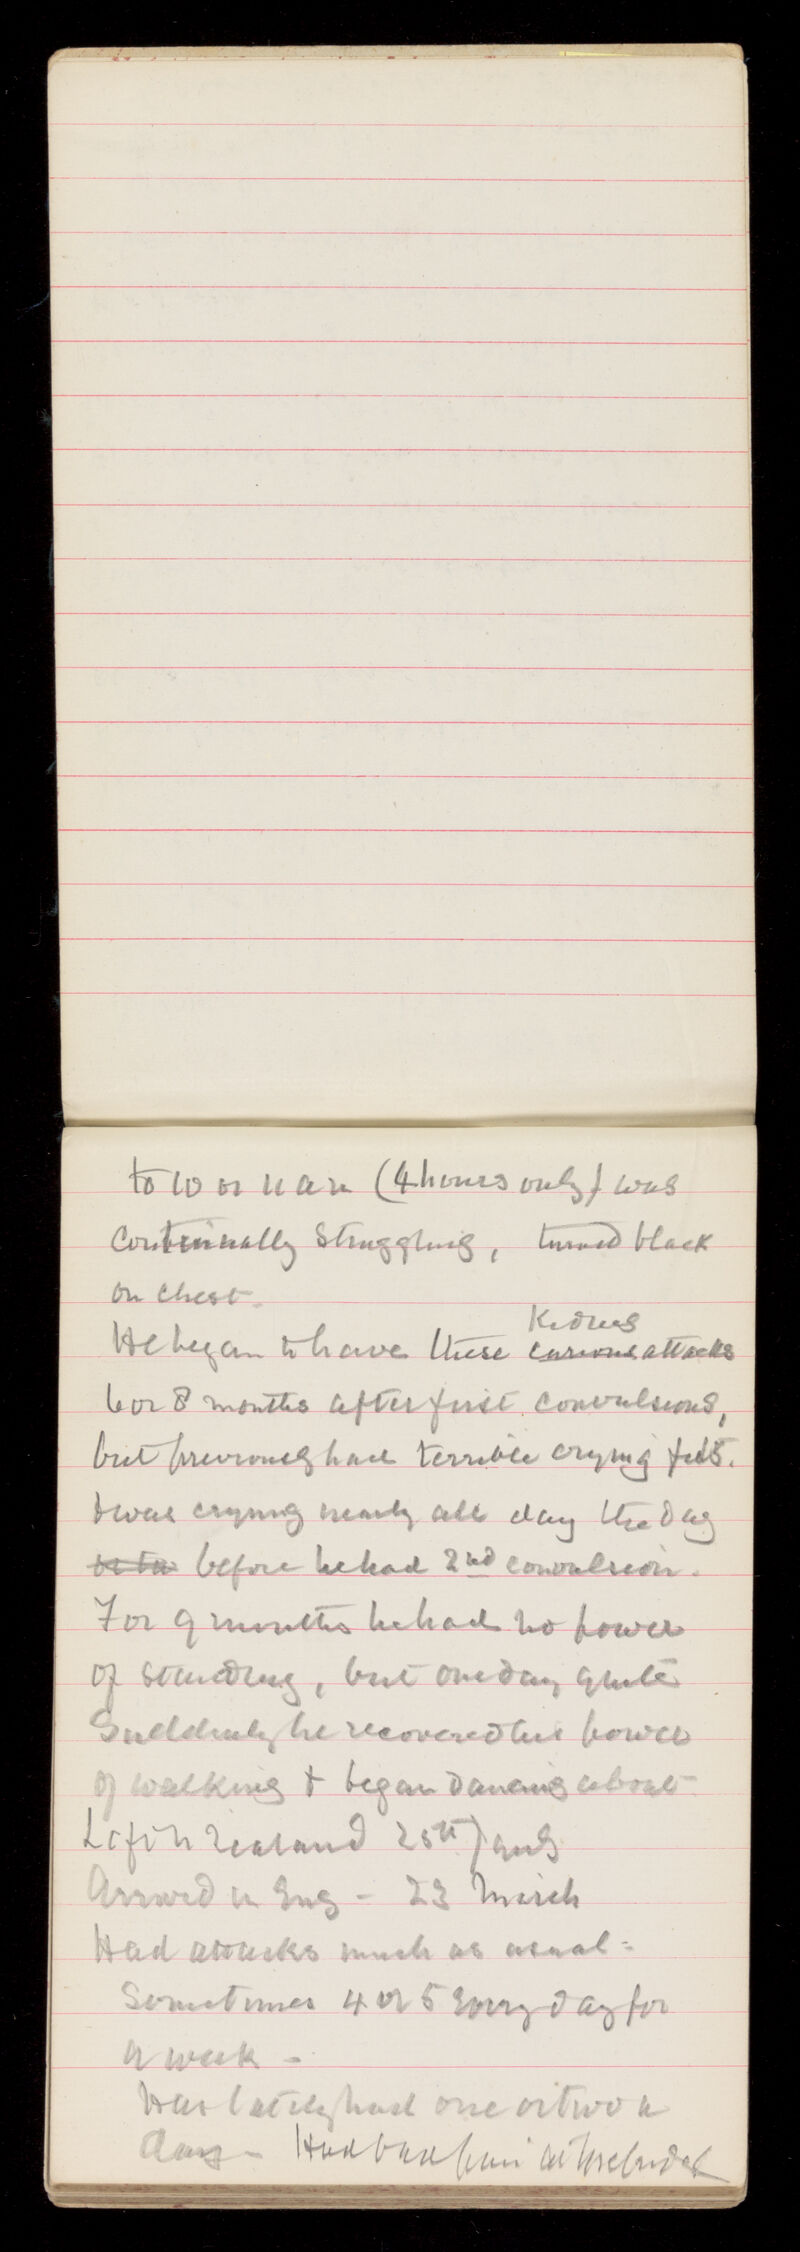 to 10 or 11 a.m (4 hours only) & was
continually struggling, turned black
on chest.
Kidney
He began to have these curious attacks
6 or 8 months after first convulsions,
but previously had terrible crying fits.
& was crying nearly all day the day
before he had 2nd convulsion.
For 9 months he had no power
of standing, but one day quite
Suddenly he recovered his power
of walking & began dancing about
Left N Zealand 25th Jany
Arrived in Eng - 23 March
Had attacks much as usual -
Sometimes 4 or 5 every day for
a week -
Has lately had one or two a
day - Had bad pain at